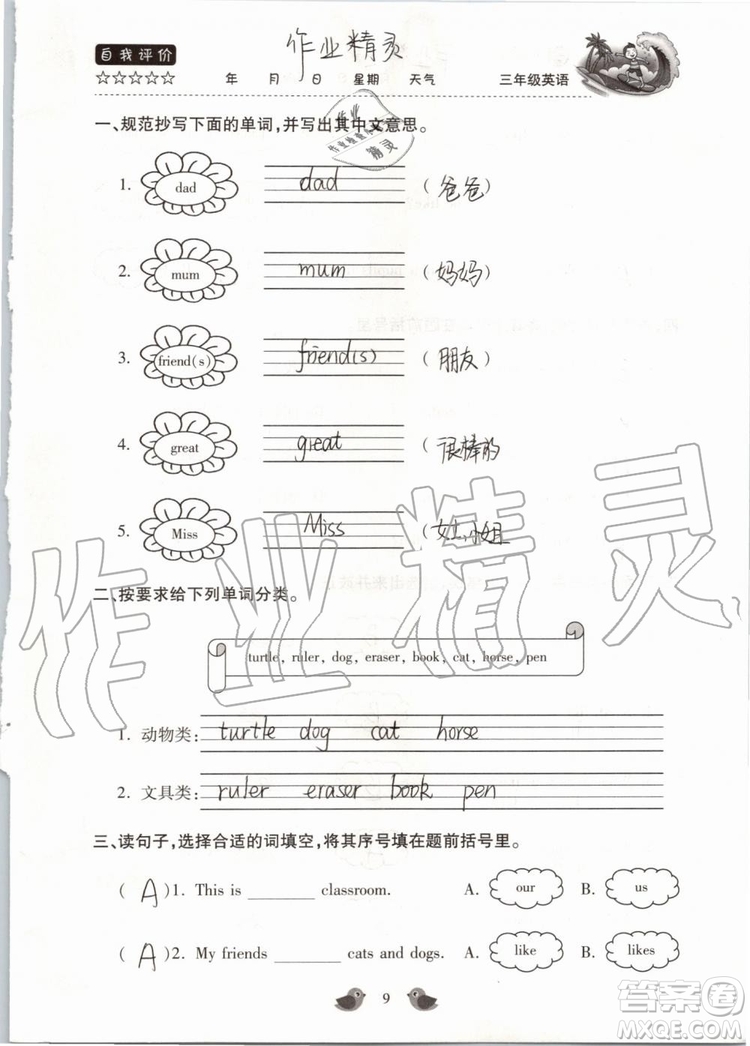 自我评价 作业精灵
☆☆☆☆☆ 年 月 日 星期 天气 三年级英语
一、规范抄写下面的单词,并写出其中文意思。
作业
作业检查
精灵
1. dad dad (爸爸)
2. mum mum (妈妈)
3. friend(s) friend(s) (朋友)
4. great great (很棒的)
5. Miss Miss (女士,小姐)
作业精灵
二、按要求给下列单词分类。
turtle, ruler, dog, eraser, book, cat, horse, pen
1. 动物类: turtle dog cat horse
2. 文具类: ruler eraser book pen
三、读句子,选择合适的词填空,将其序号填在题前括号里。
(A)1. This is ________ classroom. A. our B. us
(A)2. My friends ________ cats and dogs. A. like B. likes
9
答案圈
MXQE.COM